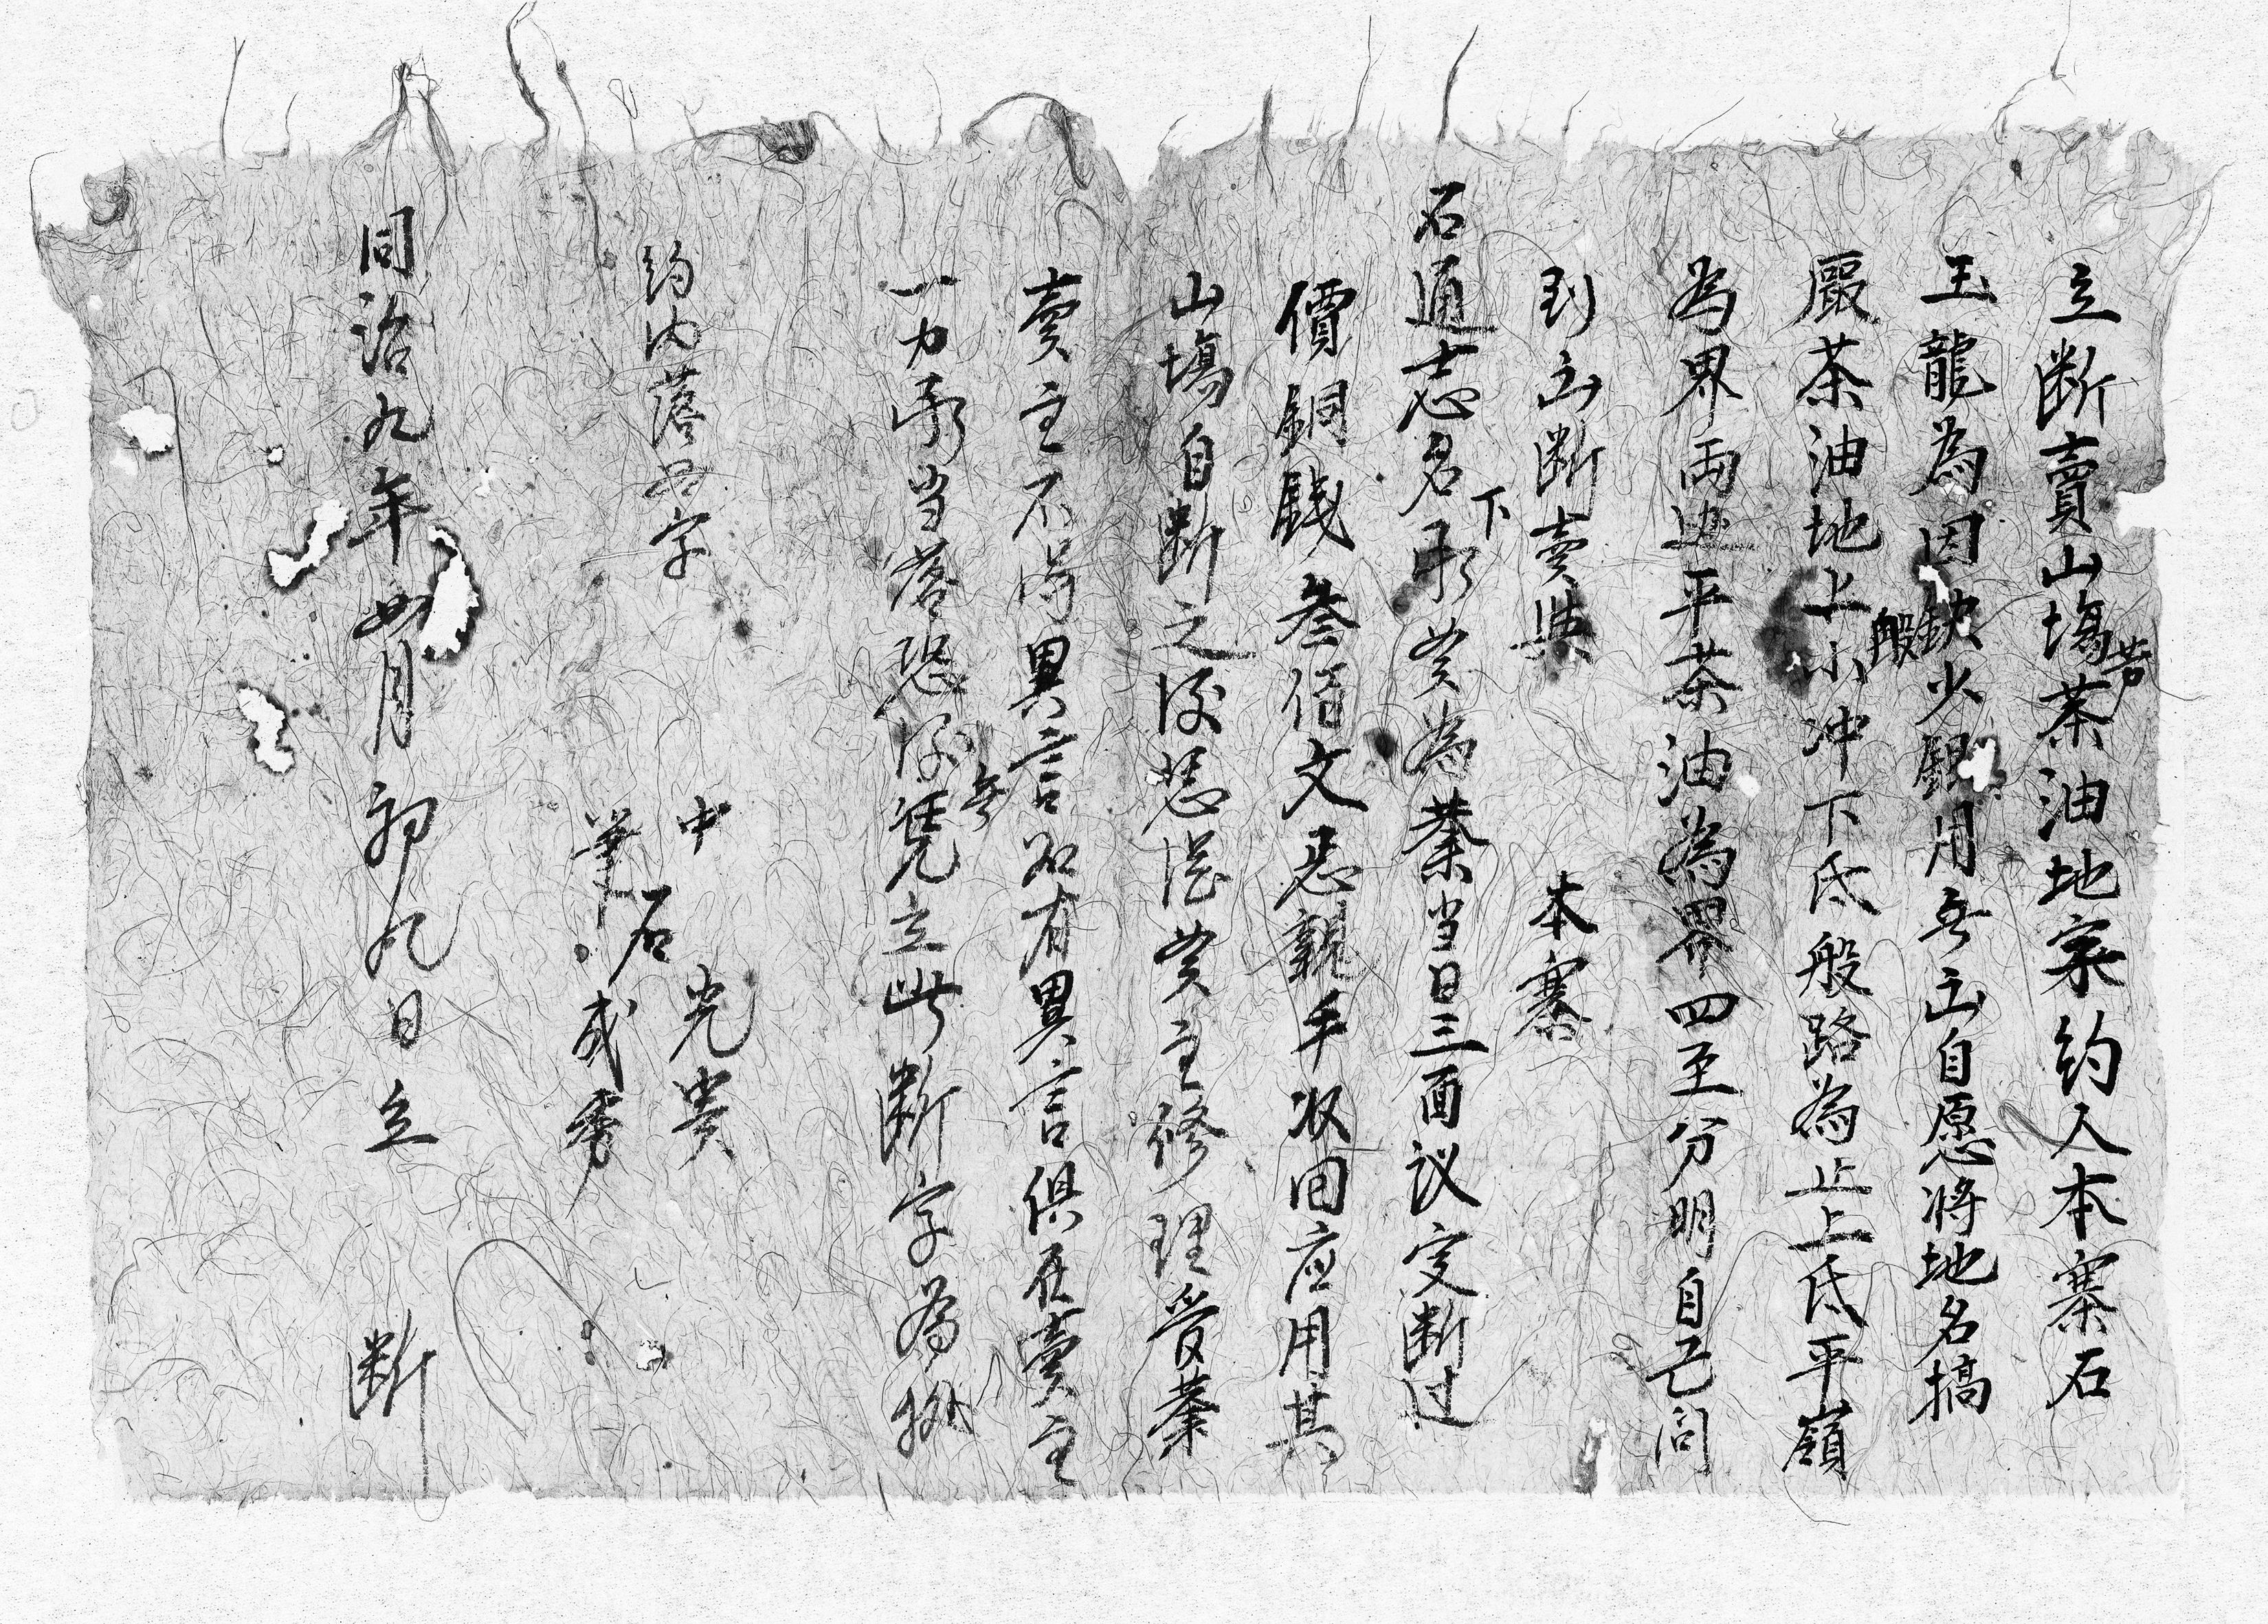 立断賣山塲荒茶油地宗約人本寨石
玉龍為因缺少銀用無出自愿將地名搞
嚴茶油地上小冲下氐般路為止上氐平嶺
為界両边平茶油為界四至分明自己问
到立断賣與本寨
石通志名下承買為業当日三面议定断过
價銅錢叁佰文恁親手収回应用其
山塲自断之後恁從買主修理管業
賣主不得異言若有異言俱在賣主
一力承当落恐後無凭立此断字為拠
約内落字
中 石光贵
筆 石成秀
同治九年四月初九日立 断